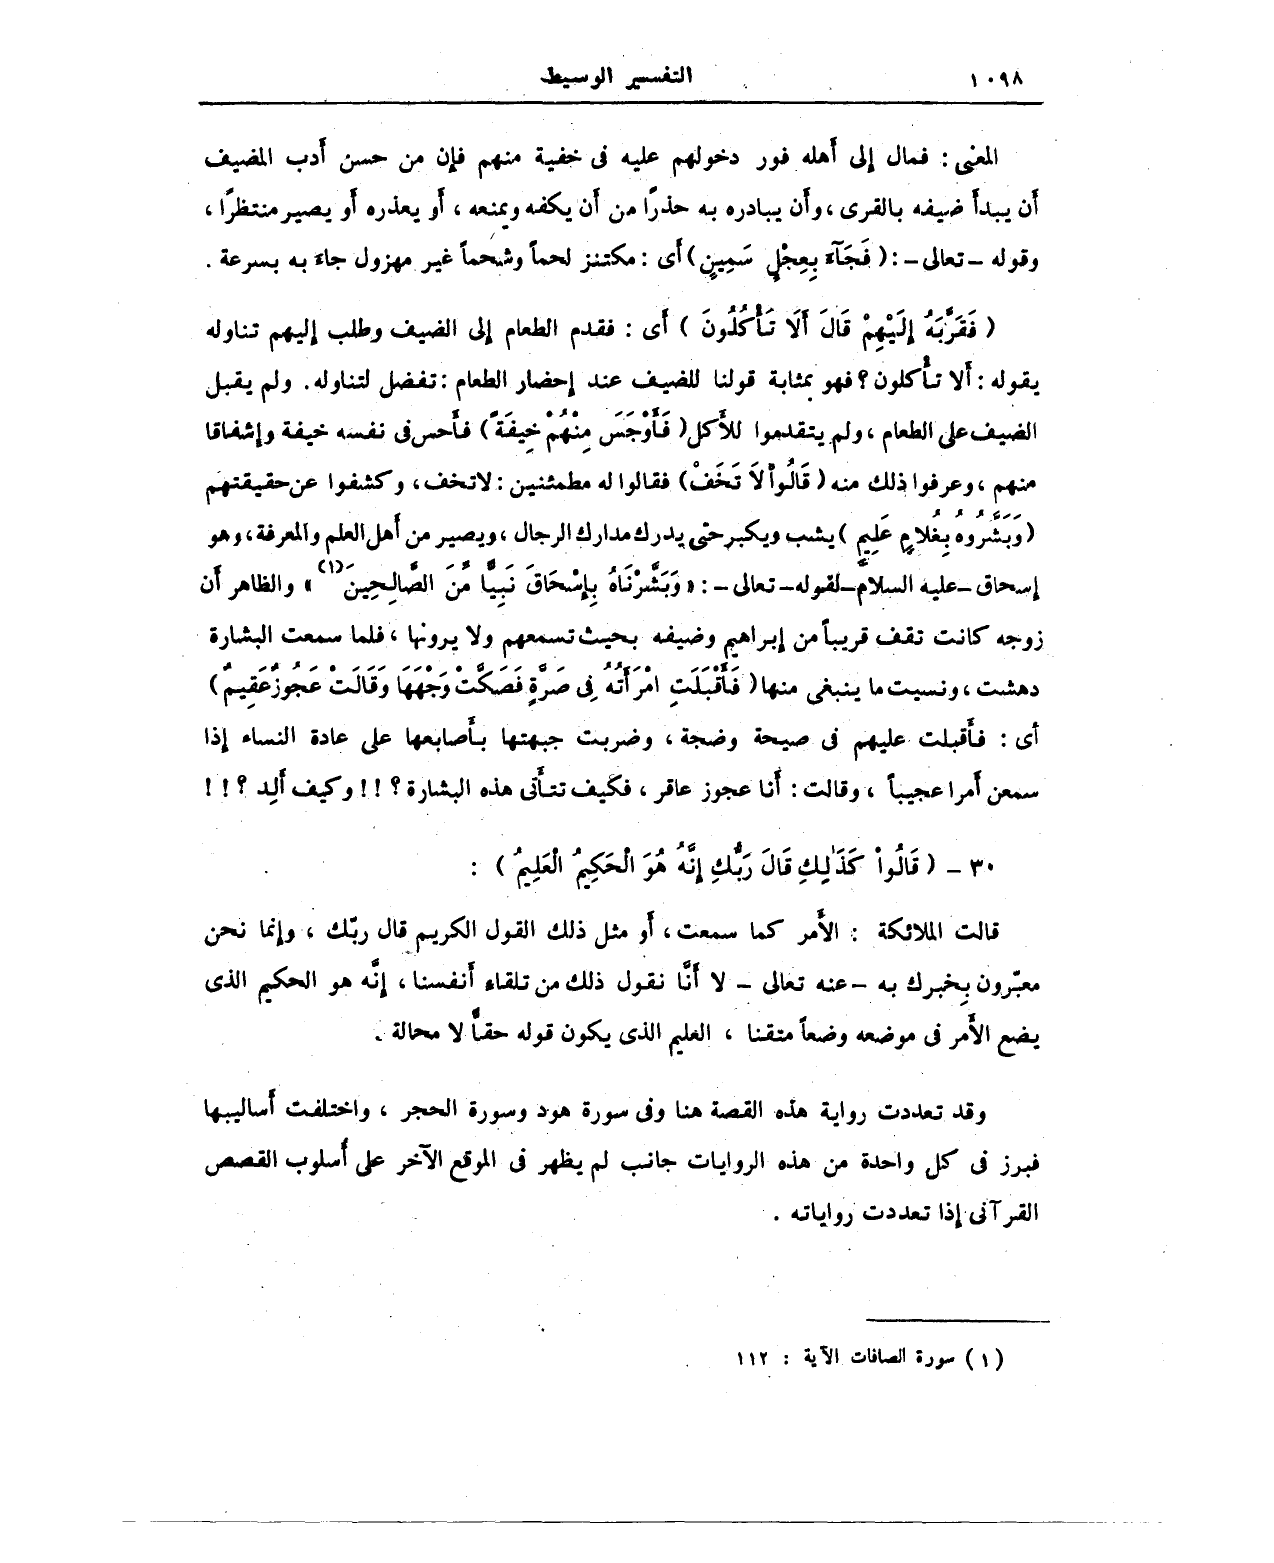 ١٠٩٨ التفسير الوسيط
المعنى : فمال إلى أهله فور دخولهم عليه فى خفية منهم فإن من حسن أدب المضيف
أن يبدأ ضيفه بالقرى ، وأن يبادره به حذرًا من أن يكفه ويمنعه ، أو يعذره أو يصير منتظرًا ،
وقوله – تعالى – : ( فَجَآءَ بِعِجْلٍ سَمِينٍ ) أى : مكتنز لحماً وشحماً غير مهزول جاء به بسرعة .
( فَقَرَّبَهُ إِلَيْهِمْ قَالَ أَلَا تَأْكُلُونَ ) أى : فقدم الطعام إلى الضيف وطلب إليهم تناوله
يقوله : ألا تأكلون ؟ فهو بمثابة قولنا للضيف عند إحضار الطعام : تفضل لتناوله . ولم يقبل
الضيف على الطعام ، ولم يتقدموا للأكل ( فَأَوْجَسَ مِنْهُمْ خِيفَةً ) فأحس فى نفسه خيفة وإشفاقا
منهم ، وعرفوا ذلك منه ( قَالُواْ لَا تَخَفْ ) فقالوا له مطمئنين : لاتخف ، وكشفوا عن حقيقتهم
( وَبَشَّرُوهُ بِغُلَامٍ عَلِيمٍ ) يشب ويكبر حتى يدرك مدارك الرجال ، ويصير من أهل العلم والمعرفة ، وهو
إسحاق – عليه السلام – لقوله – تعالى – : « وَبَشَّرْنَاهُ بِإِسْحَاقَ نَبِيًّا مِّنَ الصَّالِحِينَ (١) » والظاهر أن
زوجه كانت تقف قريباً من إبراهيم وضيفه بحيث تسمعهم ولا يرونها ، فلما سمعت البشارة
دهشت ، ونسيت ما ينبغى منها ( فَأَقْبَلَتِ امْرَأَتُهُ فِى صَرَّةٍ فَصَكَّتْ وَجْهَهَا وَقَالَتْ عَجُوزٌ عَقِيمٌ )
أى : فأقبلت عليهم فى صيحة وضجة ، وضربت جبهتها بأصابعها على عادة النساء إذا
سمعن أمرا عجيباً ، وقالت : أنا عجوز عاقر ، فكيف تتأتى هذه البشارة ؟ !! وكيف ألِد ؟ !!
٣٠ – ( قَالُواْ كَذَٰلِكِ قَالَ رَبُّكِ إِنَّهُ هُوَ الْحَكِيمُ الْعَلِيمُ ) :
قالت الملائكة : الأمر كما سمعت ، أو مثل ذلك القول الكريم قال ربّك ، وإنما نحن
معبّرون بخبرك به – عنه تعالى – لا أنَّا نقول ذلك من تلقاء أنفسنا ، إنَّه هو الحكيم الذى
يضع الأمر فى موضعه وضعاً متقنا ، العليم الذى يكون قوله حقاً لا محالة .
وقد تعددت رواية هذه القصة هنا وفى سورة هود وسورة الحجر ، واختلفت أساليبها
فبرز فى كل واحدة من هذه الروايات جانب لم يظهر فى الموقع الآخر على أسلوب القصص
القرآنى إذا تعددت رواياته .
(١) سورة الصافات الآية : ١١٢